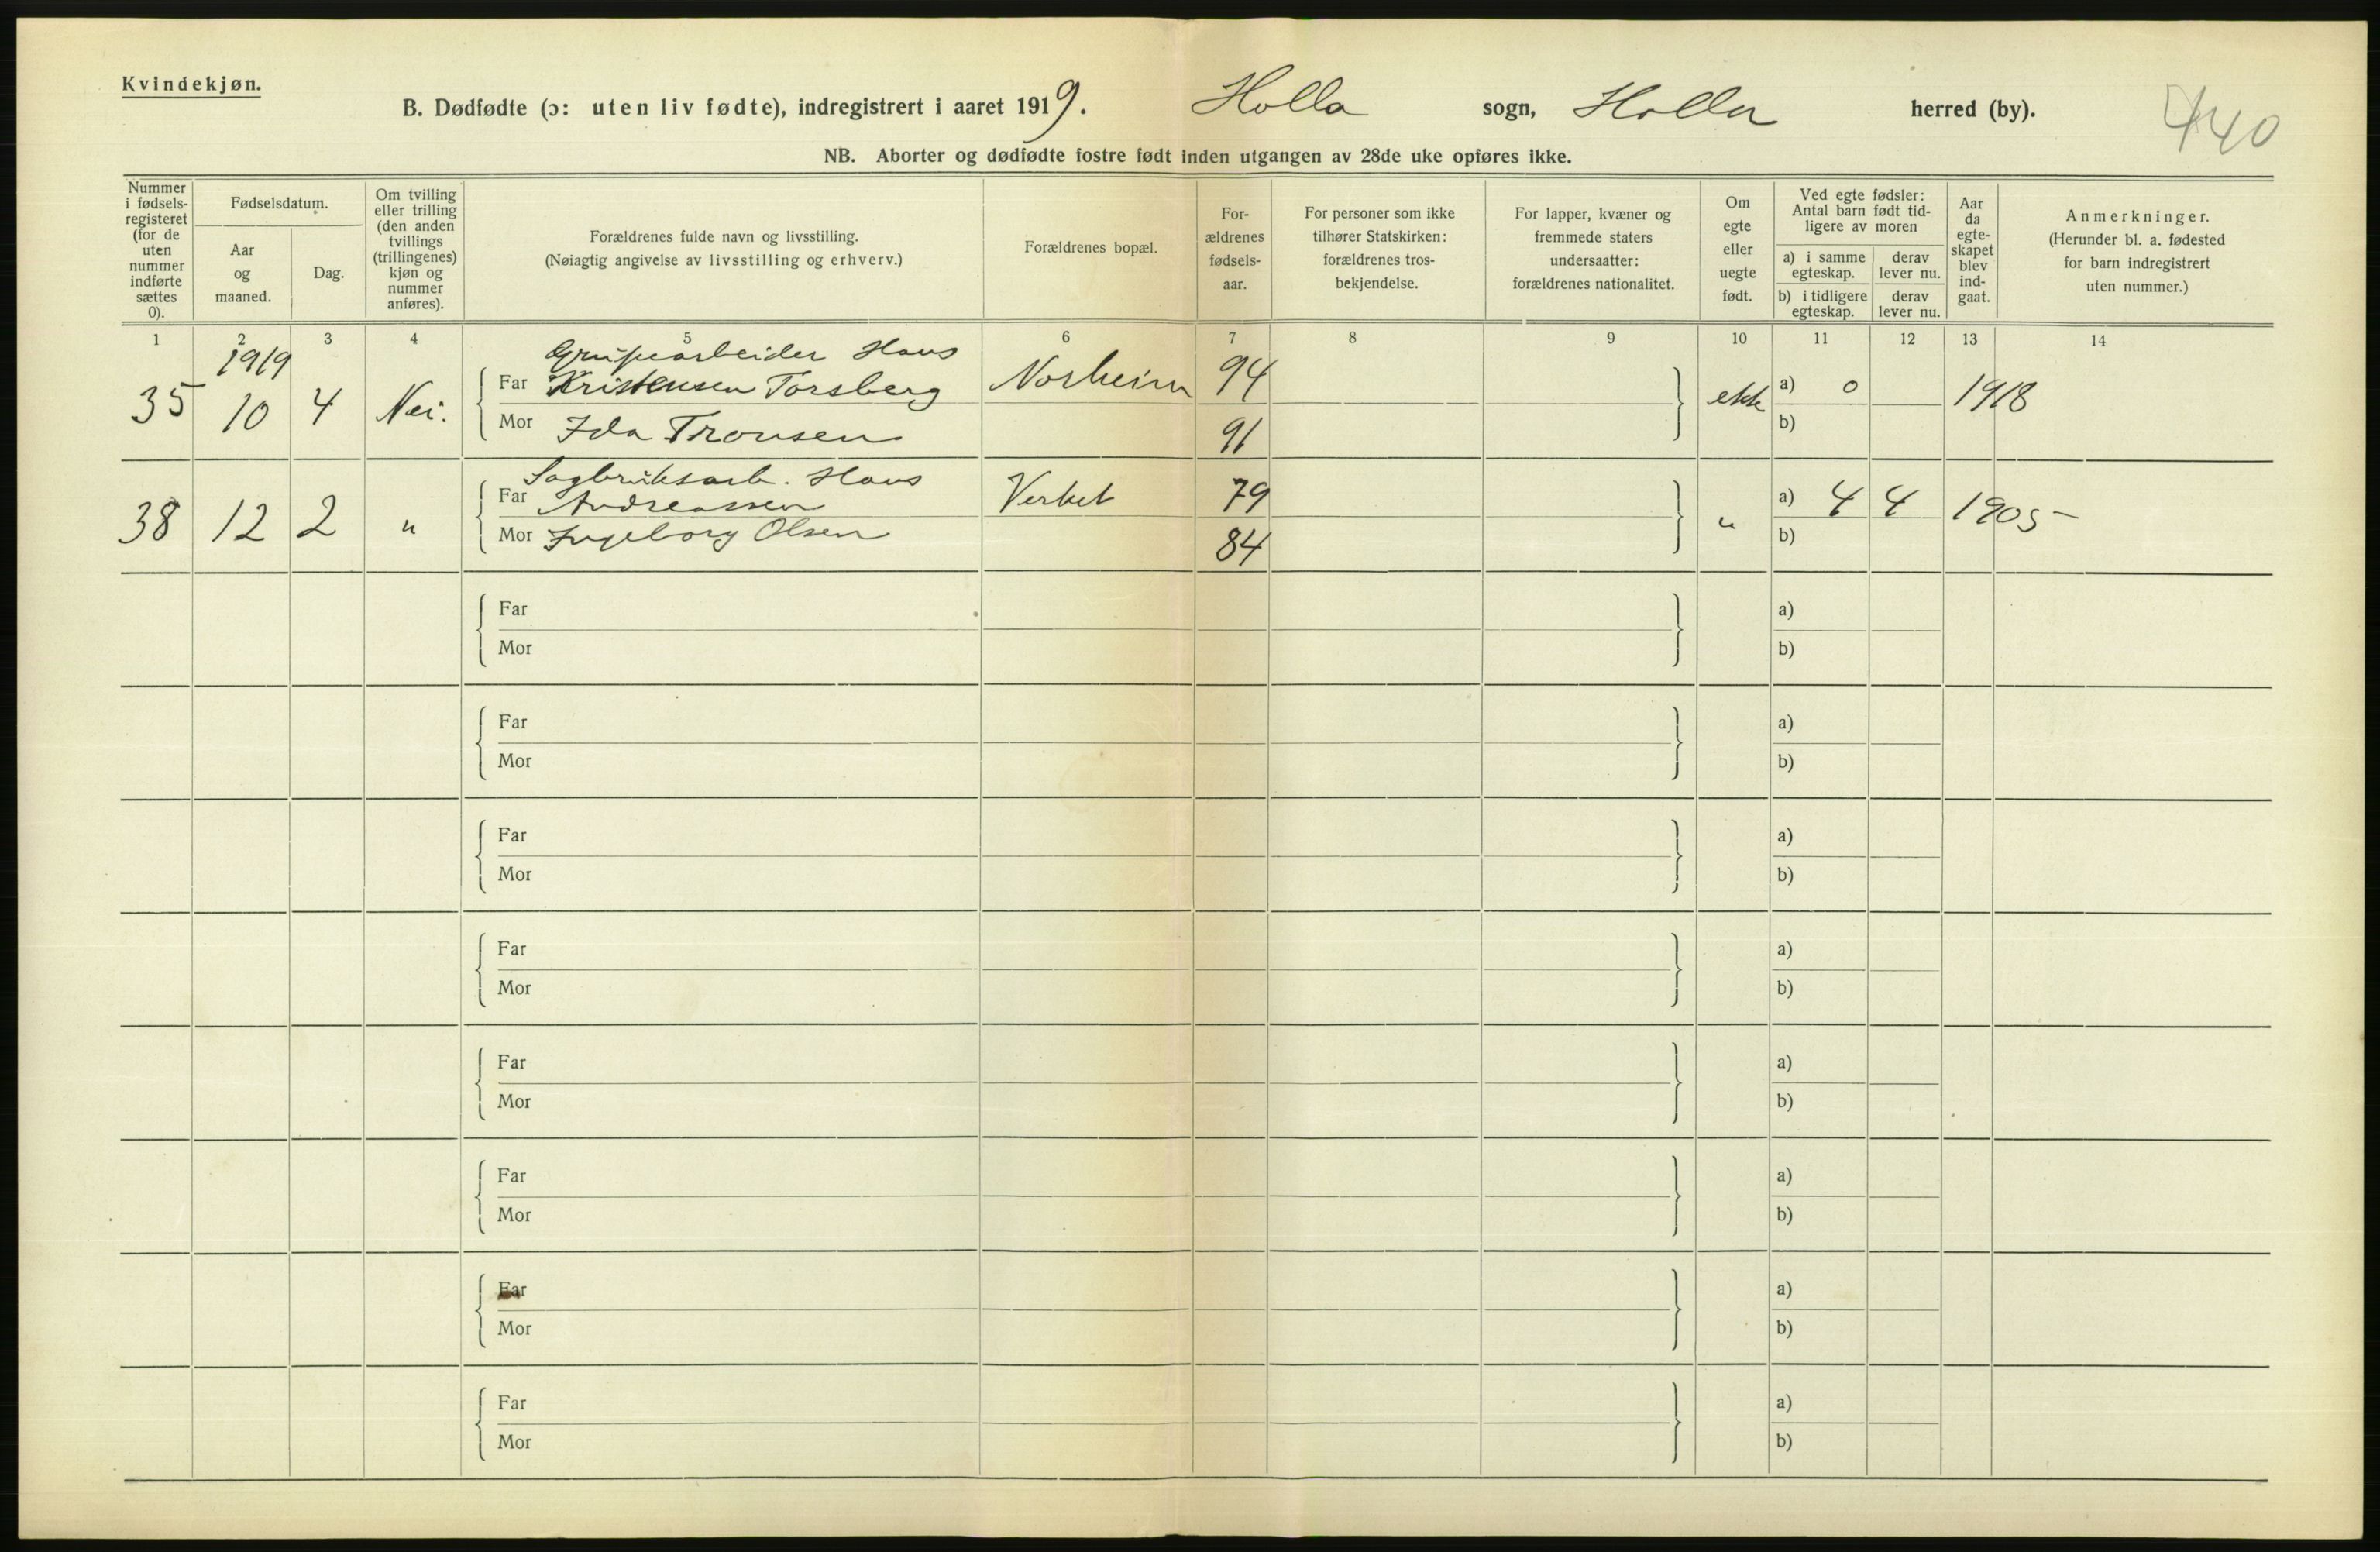 Kvindekjøn.
B. Dødfødte (ɔ: uten liv fødte), indregistrert i aaret 1919. Holla sogn, Holla herred (by).
440
NB. Aborter og dødfødte fostre født inden utgangen av 28de uke opføres ikke.
Nummer i fødsels-registeret (for de uten nummer indførte sættes 0).
Fødselsdatum.
Aar og maaned.
Dag.
Om tvilling eller trilling (den anden tvillings (trillingenes) kjøn og nummer anføres).
Forældrenes fulde navn og livsstilling.
(Nøiagtig angivelse av livsstilling og erhverv.)
Forældrenes bopæl.
For-ældrenes fødsels-aar.
For personer som ikke tilhører Statskirken: forældrenes tros-bekjendelse.
For lapper, kvæner og fremmede staters undersaatter: forældrenes nationalitet.
Om egte eller uegte født.
Ved egte fødsler: Antal barn født tid-ligere av moren
a) i samme egteskap.
derav lever nu.
b) i tidligere egteskap.
derav lever nu.
Aar da egte-skapet blev ind-gaat.
Anmerkninger.
(Herunder bl. a. fødested for barn indregistrert uten nummer.)
1 2 3 4 5 6 7 8 9 10 11 12 13 14
1919 Grubearbeider Hans
35 10 4 Nei. Far Kristensen Torsberg Norheim 94 ekte a) 0 1918
Mor Ida Tronsen 91 b)
Sagbruksarb. Hans
38 12 2 " Far Andreassen Verket 79 " a) 4 4 1905
Mor Ingeborg Olsen 84 b)
Far a)
Mor b)
Far a)
Mor b)
Far a)
Mor b)
Far a)
Mor b)
Far a)
Mor b)
Far a)
Mor b)
Far a)
Mor b)
Far a)
Mor b)